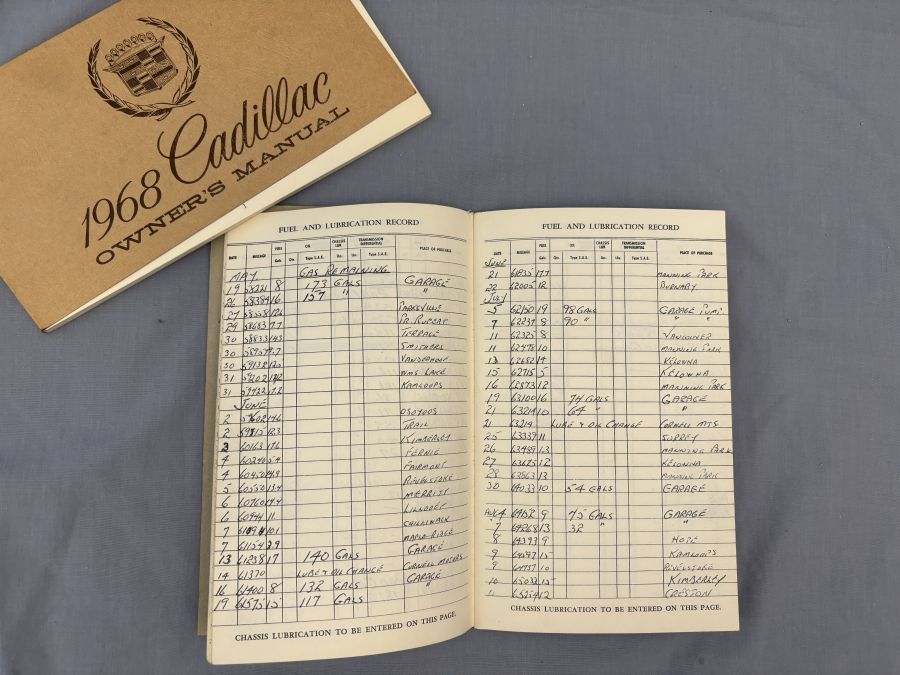 1968 Cadillac
OWNER'S MANUAL
FUEL AND LUBRICATION RECORD
DATE MILEAGE FUEL Gals. OIL Qts. Type S.A.E. CHASSIS LUB. TRANSMISSION DIFFERENTIAL Type S.A.E. PLACE OF PURCHASE
MAY GAS REMAINING
19 58221 8 173 GALS GARAGE
26 58384 16 157 " "
27 PARKSVILLE
29 58683 7.7 PR RUPERT
30 58833 TERRACE
30 SMITHERS
30 59138 VANDERHOOF
31 59202 WMS LAKE
31 59422 KAMLOOPS
JUNE
2 OSOYOOS
2 12.3 TRAIL
3 60163 17.6 KIMBERLEY
4 60240 5.4 FERNIE
4 60450 14.9 FAIRMONT
5 60550 13.4 REVELSTOKE
6 60760 14.4 MERRITT
6 60944 11 LILLOOET
7 10.1 CHILLIWACK
7 61154 3.9 MAPLE RIDGE
13 61238 17 140 GALS GARAGE
14 61370 LUBE & OIL CHANGE CORNELL MOTORS
16 61400 8 132 GALS GARAGE
19 61575 15 117 GALS "
CHASSIS LUBRICATION TO BE ENTERED ON THIS PAGE.
FUEL AND LUBRICATION RECORD
DATE MILEAGE FUEL Gals. OIL Qts. Type S.A.E. CHASSIS LUB. TRANSMISSION DIFFERENTIAL Type S.A.E. PLACE OF PURCHASE
JUNE
21 61835 17.7 MANNING PARK
22 62005 12 BURNABY
JULY
5 62150 19 98 GALS GARAGE PUMP
7 62237 8 90 " "
11 62325 8 VANCOUVER
11 62478 10 MANNING PARK
13 62682 14 KELOWNA
15 62715 5 KELOWNA
16 62873 12 MANNING PARK
19 63100 16 74 GALS GARAGE
21 63214 10 64 " "
21 63214 LUBE & OIL CHANGE CORNELL MTS
25 63339 11 SURREY
26 63489 13 MANNING PARK
27 63675 12 KELOWNA
28 63863 13 MANNING PARK
30 64033 10 54 GALS GARAGE
AUG 4 9 45 GALS GARAGE
" 7 64268 13 32 " "
8 64393 9 HOPE
9 64597 15 KAMLOOPS
9 64757 10 REVELSTOKE
10 65032 15 KIMBERLEY
11 65254 12 CRESTON
CHASSIS LUBRICATION TO BE ENTERED ON THIS PAGE.